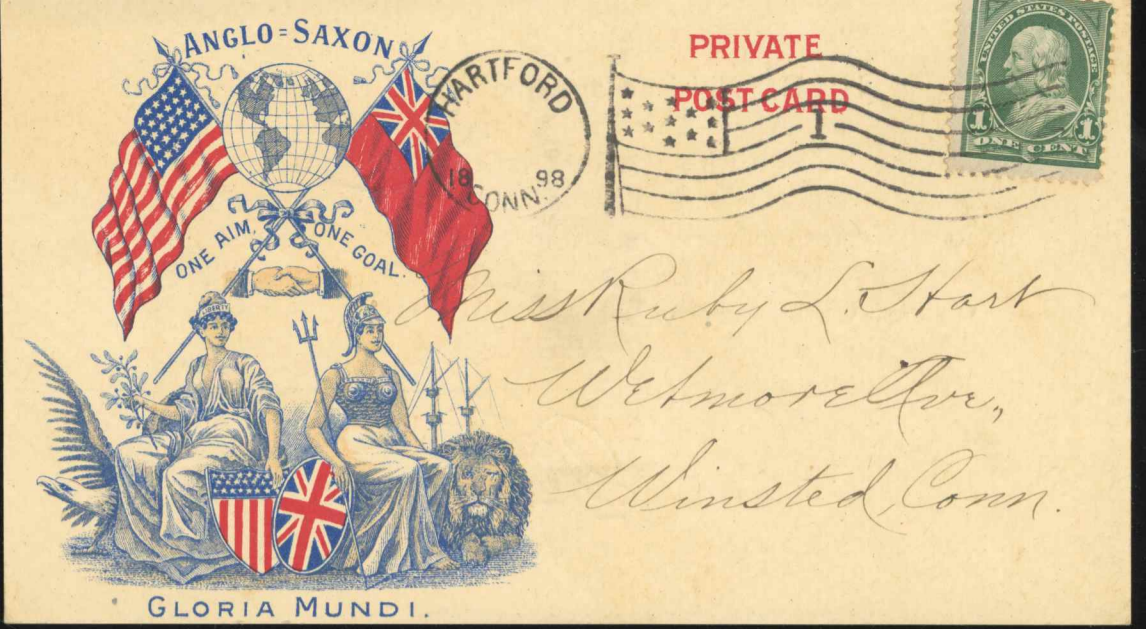 ANGLO=SAXON
ONE AIM, ONE GOAL.
LIBERTY
GLORIA MUNDI.
HARTFORD
18 98
CONN.
PRIVATE
POST CARD
1
UNITED STATES POSTAGE
1 1
ONE CENT
Miss Ruby L. Hart
Wetmore Ave.,
Winsted, Conn.